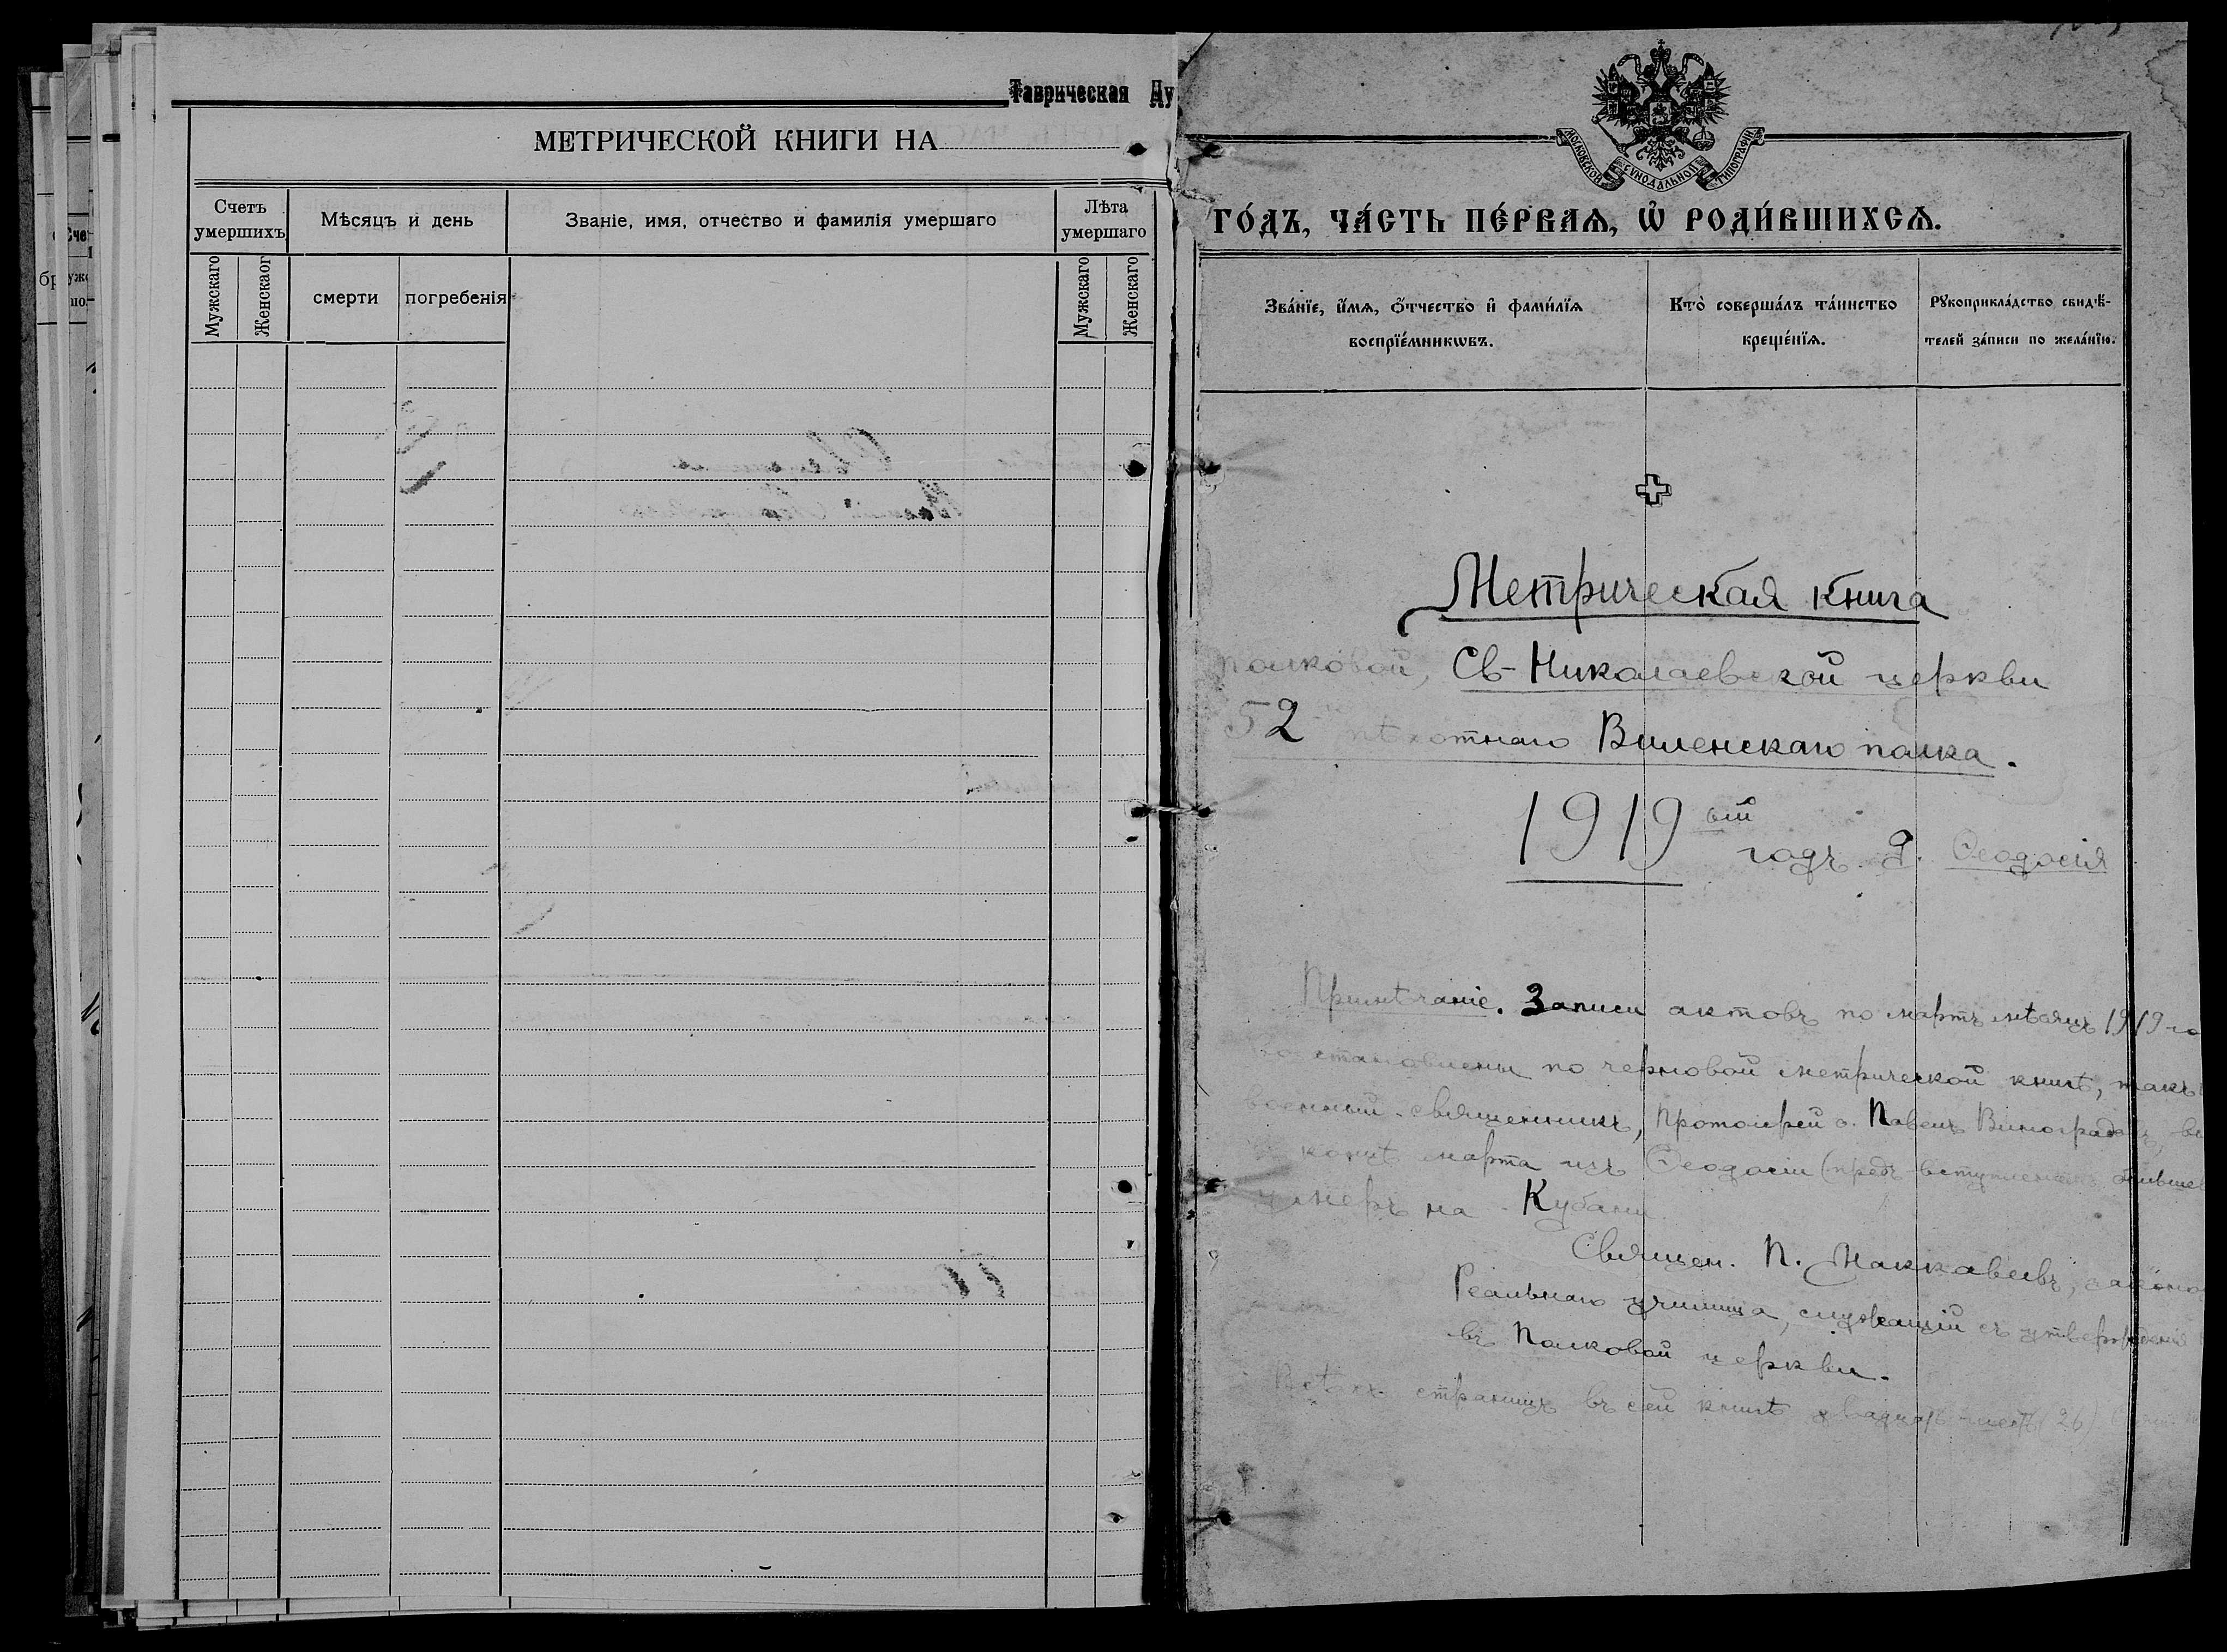 Таврическая Ду
МЕТРИЧЕСКОЙ КНИГИ НА
Счетъ умершихъ
Мѣсяцъ и день
Званіе, имя, отчество и фамилія умершаго
Лѣта умершаго
Мужскаго
Женскаог
смерти
погребенія
Мужскаго
Женскаго
МОСКОВСКОЙ СѴНОДАЛЬНОЙ ТИПОГРАФІИ
ГО́ДЪ, ЧА́СТЬ ПЕ́РВАѦ, Ѡ҆ РОДИ́ВШИХСѦ.
Зва́нїе, и҆́мѧ, ѻ҆́тчество и҆ фами́лїѧ
воспрїе́мникѡвъ.
Кто̀ соверша́лъ та́инство
креще́нїѧ.
Рꙋкоприкла́дство свидѣ́-
телей за́писи по жела́нїю.
Метрическая книга
полковой, Св-Николаевской церкви
52 пѣхотнаго Виленскаго полка.
1919 ый годъ. г. Ѳеодосія
Примѣчаніе. Записи актовъ по мартъ мѣсяцъ 1919 го
возстановлены по черновой метрической книгѣ, такъ
военный священникъ, Протоіерей о. Павелъ Виноградовъ,
концѣ марта изъ Ѳеодосіи (предъ вступленіемъ
умеръ на Кубани
Священ. П. Маккавеевъ,
Реальнаго училища, служащій съ утвержденія
въ Полковой церкви.
Всѣхъ страницъ въ сей книгѣ двадцать шесть (26)